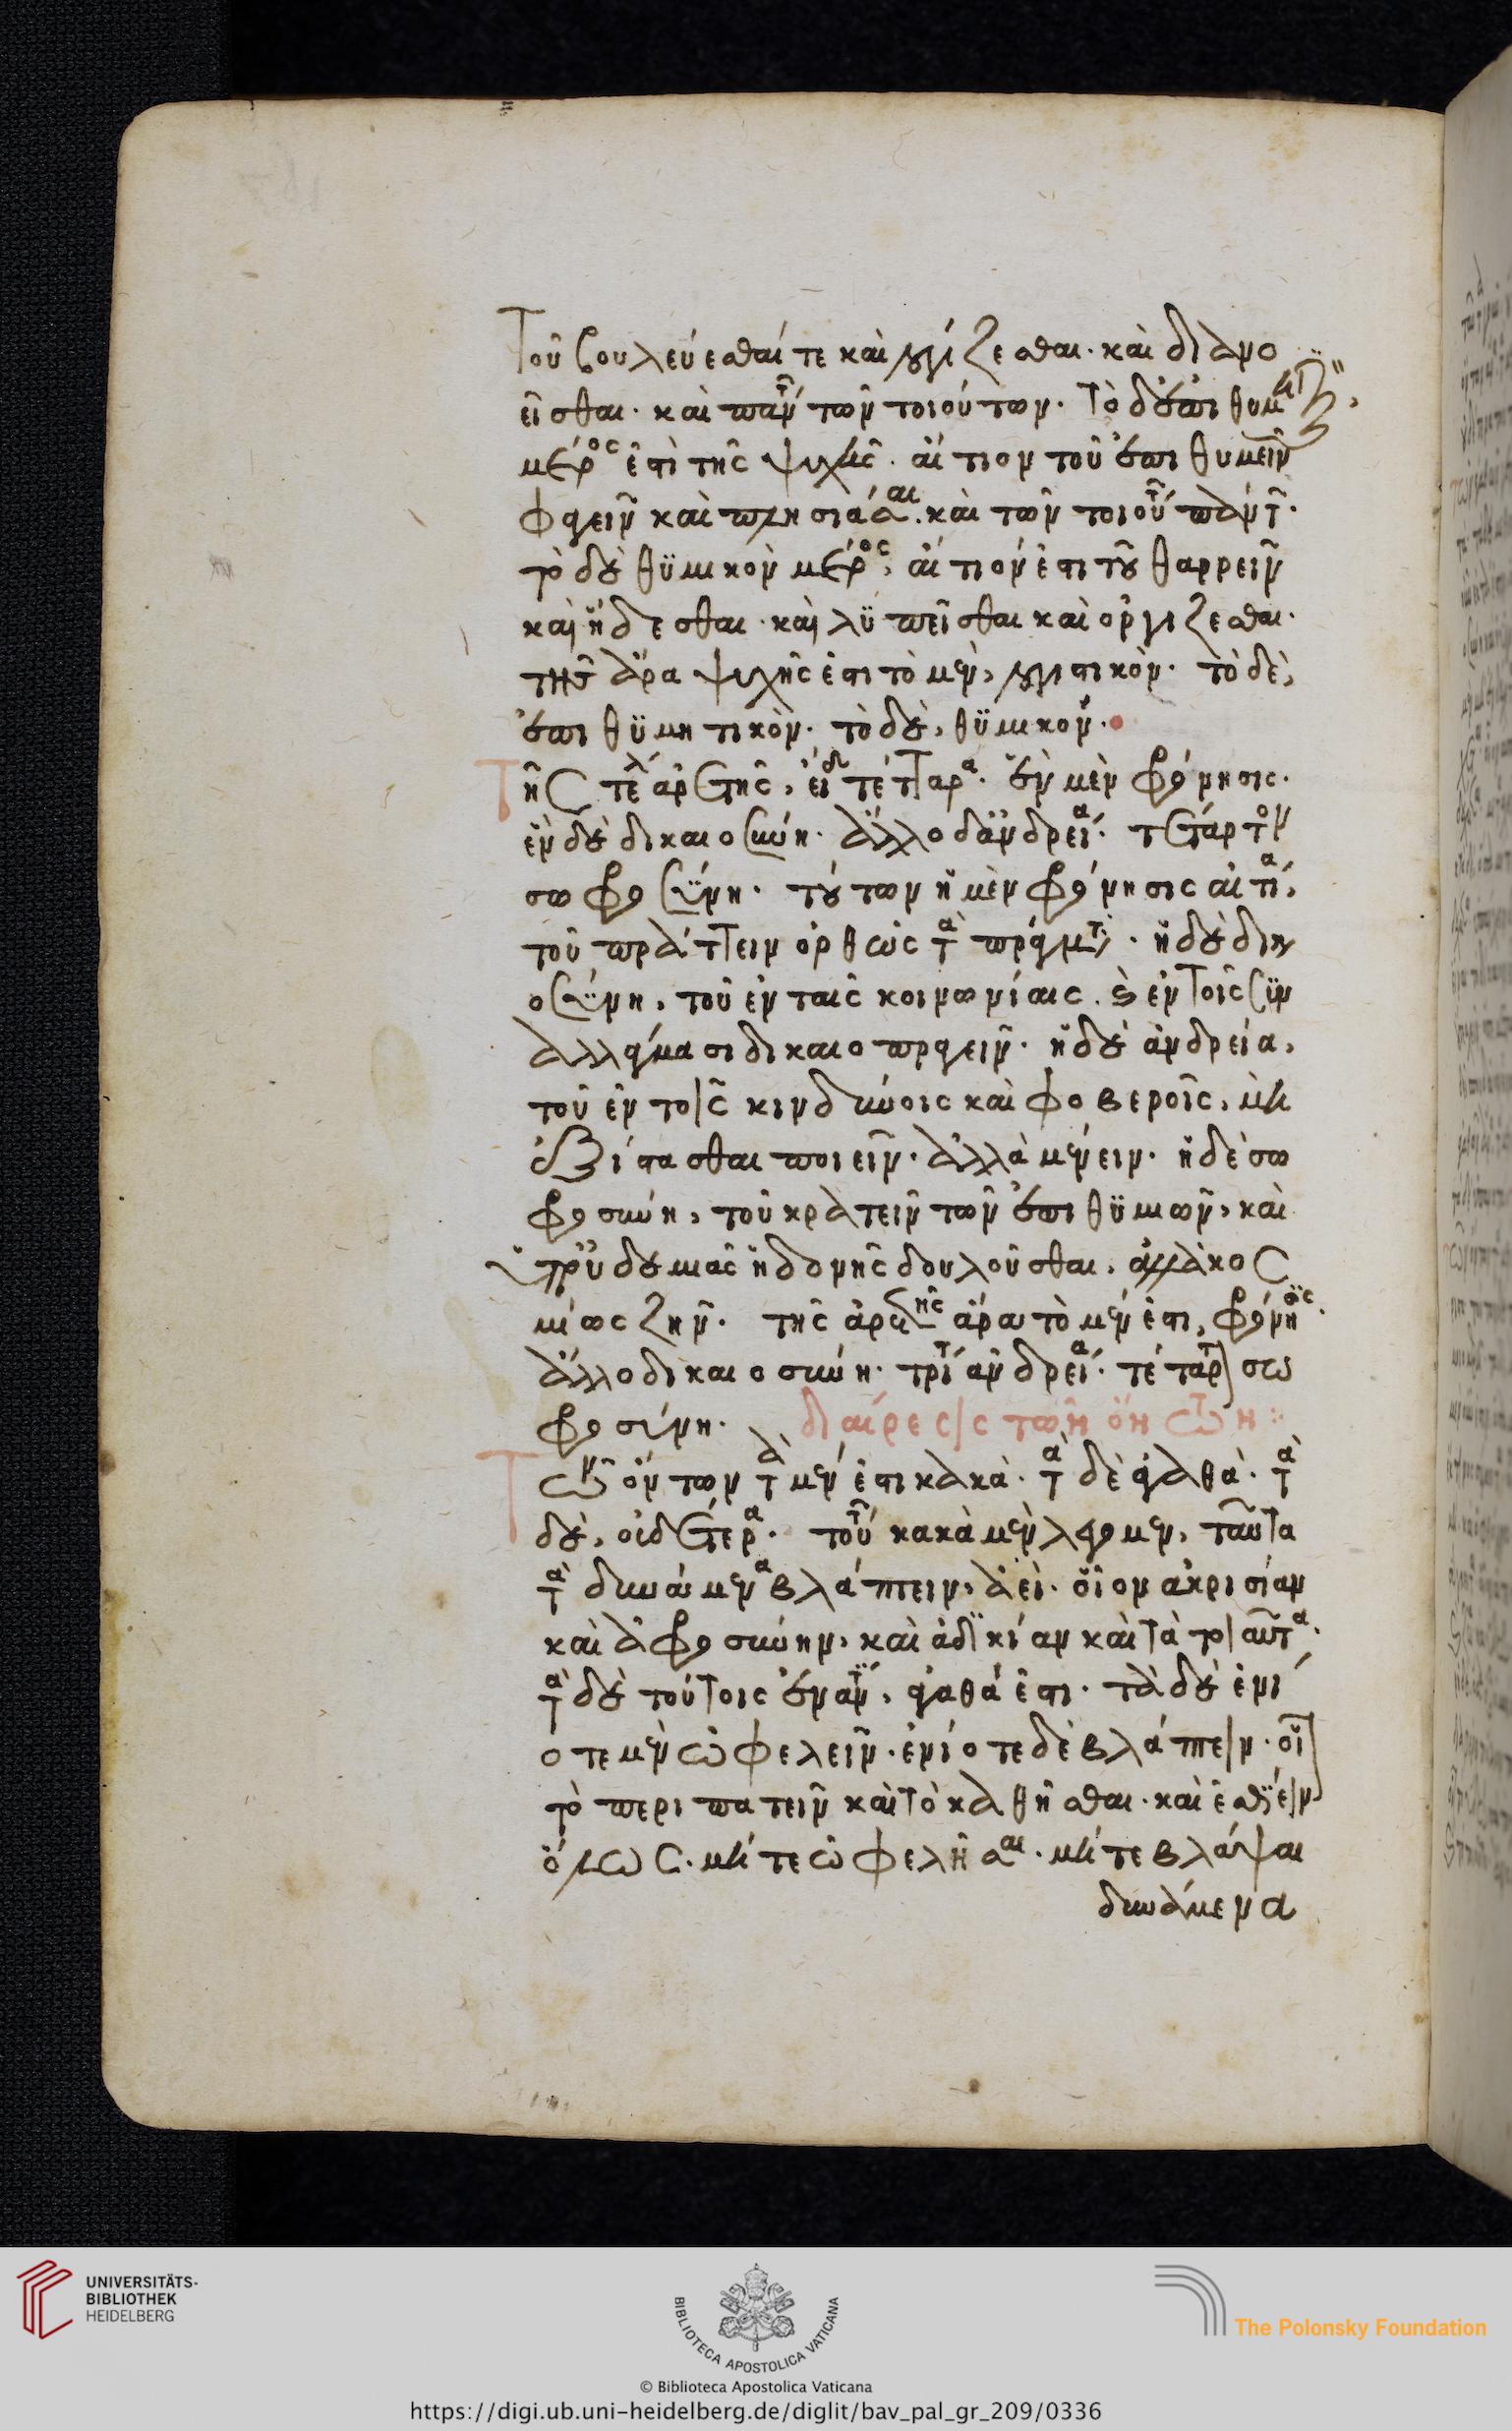 τοῦ βουλεύεσθαί τε καὶ λογίζεσθαι· καὶ διανο
εῖσθαι· καὶ πάντων τῶν τοιούτων· τὸ δὲ ἐπιθυμητικὸν
μέρος ἐστὶ τῆς ψυχῆς· αἴτιον τοῦ ἐπιθυμεῖν
φαγεῖν καὶ πλησιάσαι· καὶ τῶν τοιούτων πάντων·
τὸ δὲ θϋμικὸν μέρος, αἴτιόν ἐστι τοῦ θαρρεῖν
καὶ ἥδεσθαι· καὶ λϋπεῖσθαι καὶ ὀργίζεσθαι·
τῆς ἄρα ψυχῆς ἐστι τὸ μὲν, λογιστικὸν· τὸ δὲ,
ἐπιθϋμητικὸν· τὸ δὲ, θϋμικόν·
Τῆς τελείας ἀρετῆς, εἴδη τέτταρα· ἓν μὲν φρόνησις·
ἓν δὲ δικαιοσύνη· ἄλλο δ' ἀνδρεία· τέταρτον
σωφροσύνη· τούτων ἡ μὲν φρόνησις αἰτία,
τοῦ πράττειν ὀρθῶς τὰ πράγματα· ἡ δὲ δικαι
οσύνη, τοῦ ἐν ταῖς κοινωνίαις· καὶ ἐν τοῖς συν
αλλάγμασι δικαιοπραγεῖν· ἡ δὲ ἀνδρεία,
τοῦ ἐν τοῖς κινδύνοις καὶ φοβεροῖς, μὴ
ἐξίστασθαι ποιεῖν· ἀλλὰ μένειν· ἡ δὲ σω
φροσύνη, τοῦ κρατεῖν τῶν ἐπιθϋμιῶν, καὶ
ὑπ' οὐδεμιᾶς ἡδονῆς δουλοῦσθαι, ἀλλὰ κοσ
μίως ζῆν· τῆς ἀρετῆς ἄρα τὸ μέν ἐστι, φρόνησις·
ἄλλο δικαιοσύνη· τρίτον ἀνδρεία· τέταρτον σω
φροσύνη· διαίρεσις τῶν ὄντων:
Τῶν ὄντων τὰ μέν ἐστι κακὰ· τὰ δὲ ἀγαθὰ· τὰ
δὲ, οὐδέτερα· τούτων κακὰ μὲν λέγομεν, ταῦτα
τὰ δυνάμενα βλάπτειν, ἀεὶ· οἷον ἀκρισίαν
καὶ ἀφροσύνην, καὶ ἀδϊκίαν καὶ τὰ τοιαῦτα·
τὰ δὲ τούτοις ἐναντία, ἀγαθά ἐστι· τὰ δὲ ἐνί
οτε μὲν ὠφελεῖν· ἐνίοτε δὲ βλάπτειν· οἷον
τὸ περιπατεῖν καὶ τὸ καθῆσθαι· καὶ ἐσθίειν
ὅλως· μήτε ὠφελῆσαι· μήτε βλάψαι
δυνάμενα
UNIVERSITÄTS-
BIBLIOTHEK
HEIDELBERG
BIBLIOTECA APOSTOLICA VATICANA
The Polonsky Foundation
© Biblioteca Apostolica Vaticana
https://digi.ub.uni-heidelberg.de/diglit/bav_pal_gr_209/0336